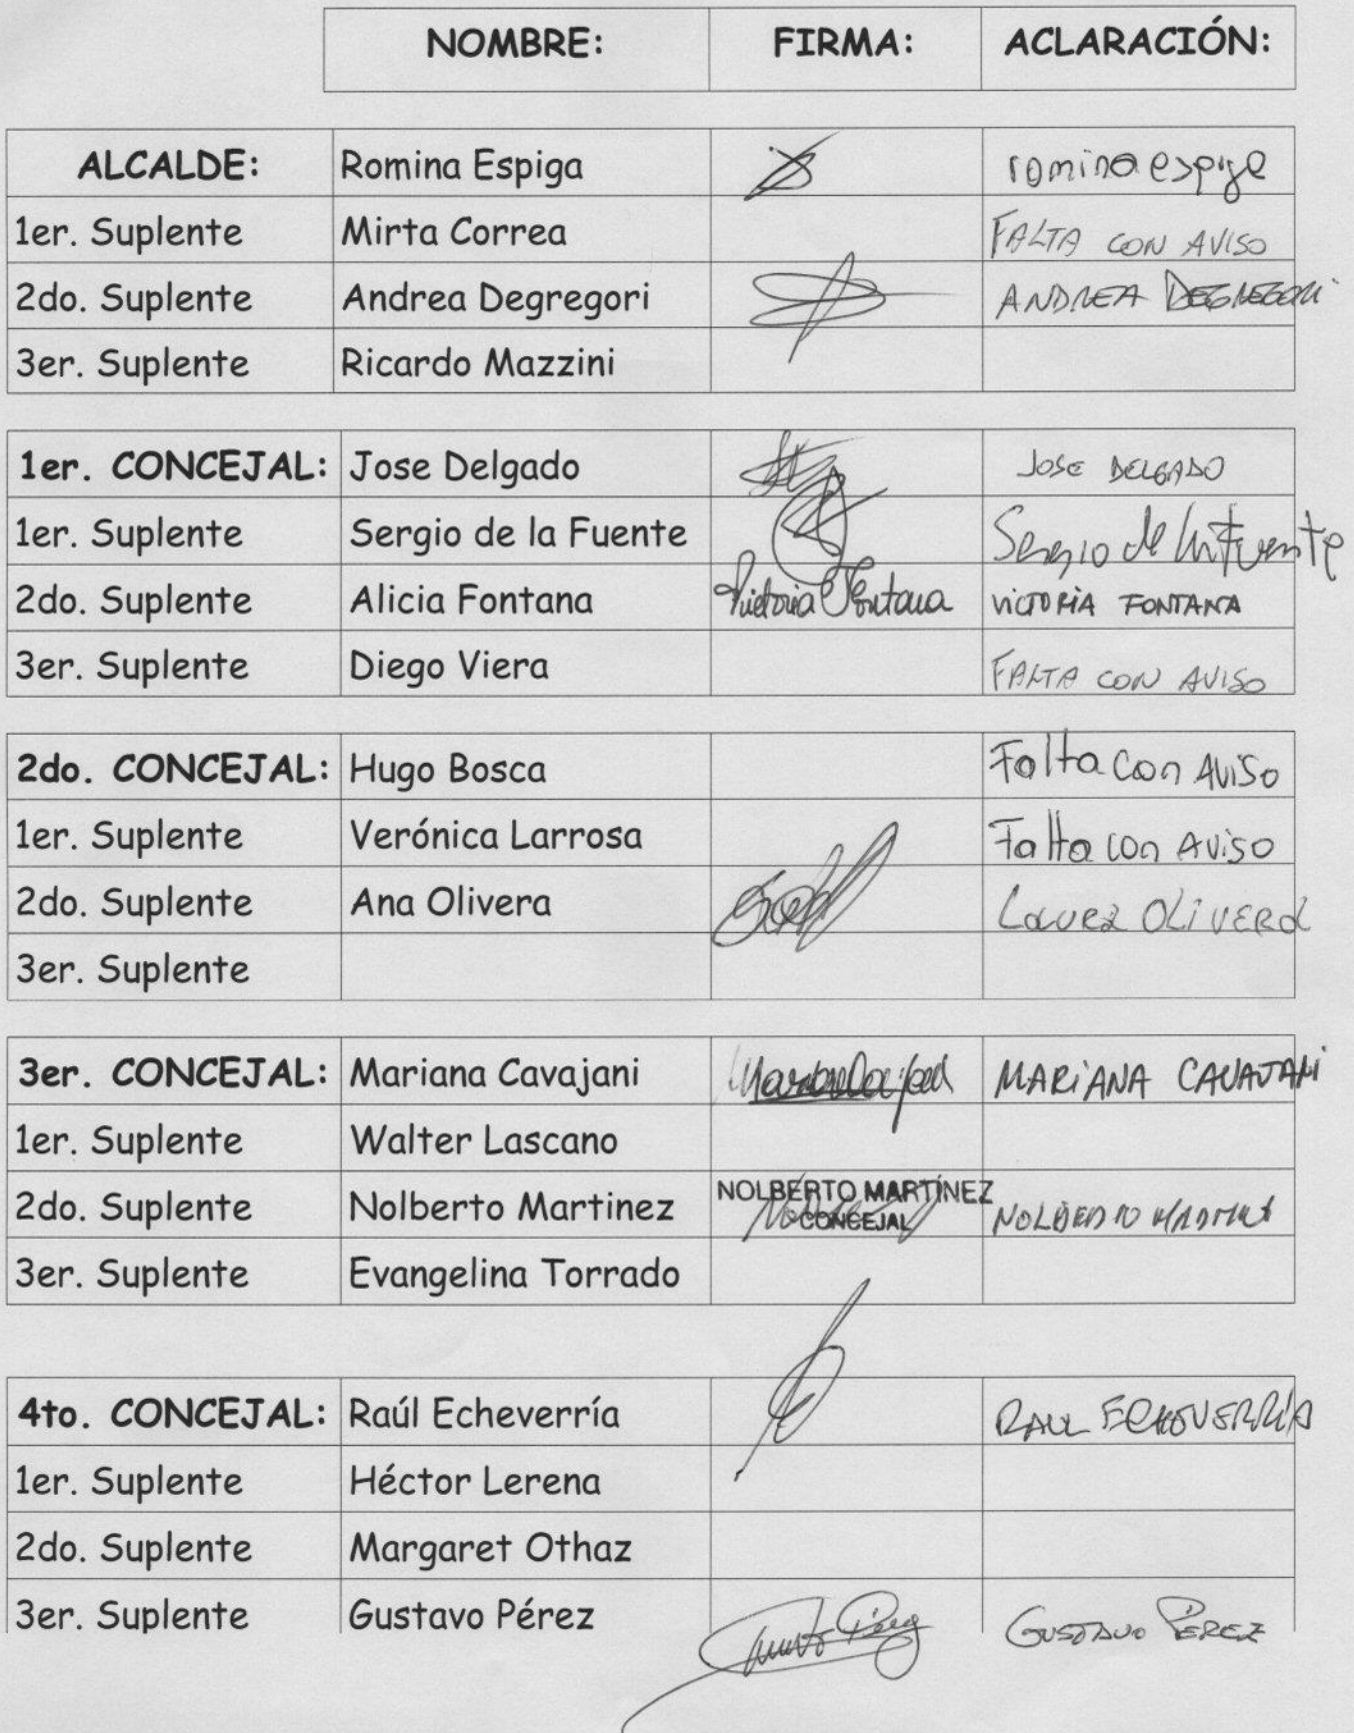 NOMBRE: FIRMA: ACLARACIÓN:
ALCALDE: Romina Espiga romina espiga
1er. Suplente Mirta Correa FALTA CON AVISO
2do. Suplente Andrea Degregori ANDREA DEGREGORI
3er. Suplente Ricardo Mazzini
1er. CONCEJAL: Jose Delgado JOSE DELGADO
1er. Suplente Sergio de la Fuente Sergio de la Fuente
2do. Suplente Alicia Fontana Victoria Fontana VICTORIA FONTANA
3er. Suplente Diego Viera FALTA CON AVISO
2do. CONCEJAL: Hugo Bosca Falta con AViso
1er. Suplente Verónica Larrosa Falta con AViso
2do. Suplente Ana Olivera Laura OLiVERa
3er. Suplente
3er. CONCEJAL: Mariana Cavajani MARiANA CAVAJANi
1er. Suplente Walter Lascano
2do. Suplente Nolberto Martinez NOLBERTO MARTÍNEZ NOLBERTO MARTINEZ
CONCEJAL
3er. Suplente Evangelina Torrado
4to. CONCEJAL: Raúl Echeverría RAUL ECHEVERRÍA
1er. Suplente Héctor Lerena
2do. Suplente Margaret Othaz
3er. Suplente Gustavo Pérez GUSTAVO PÉREZ